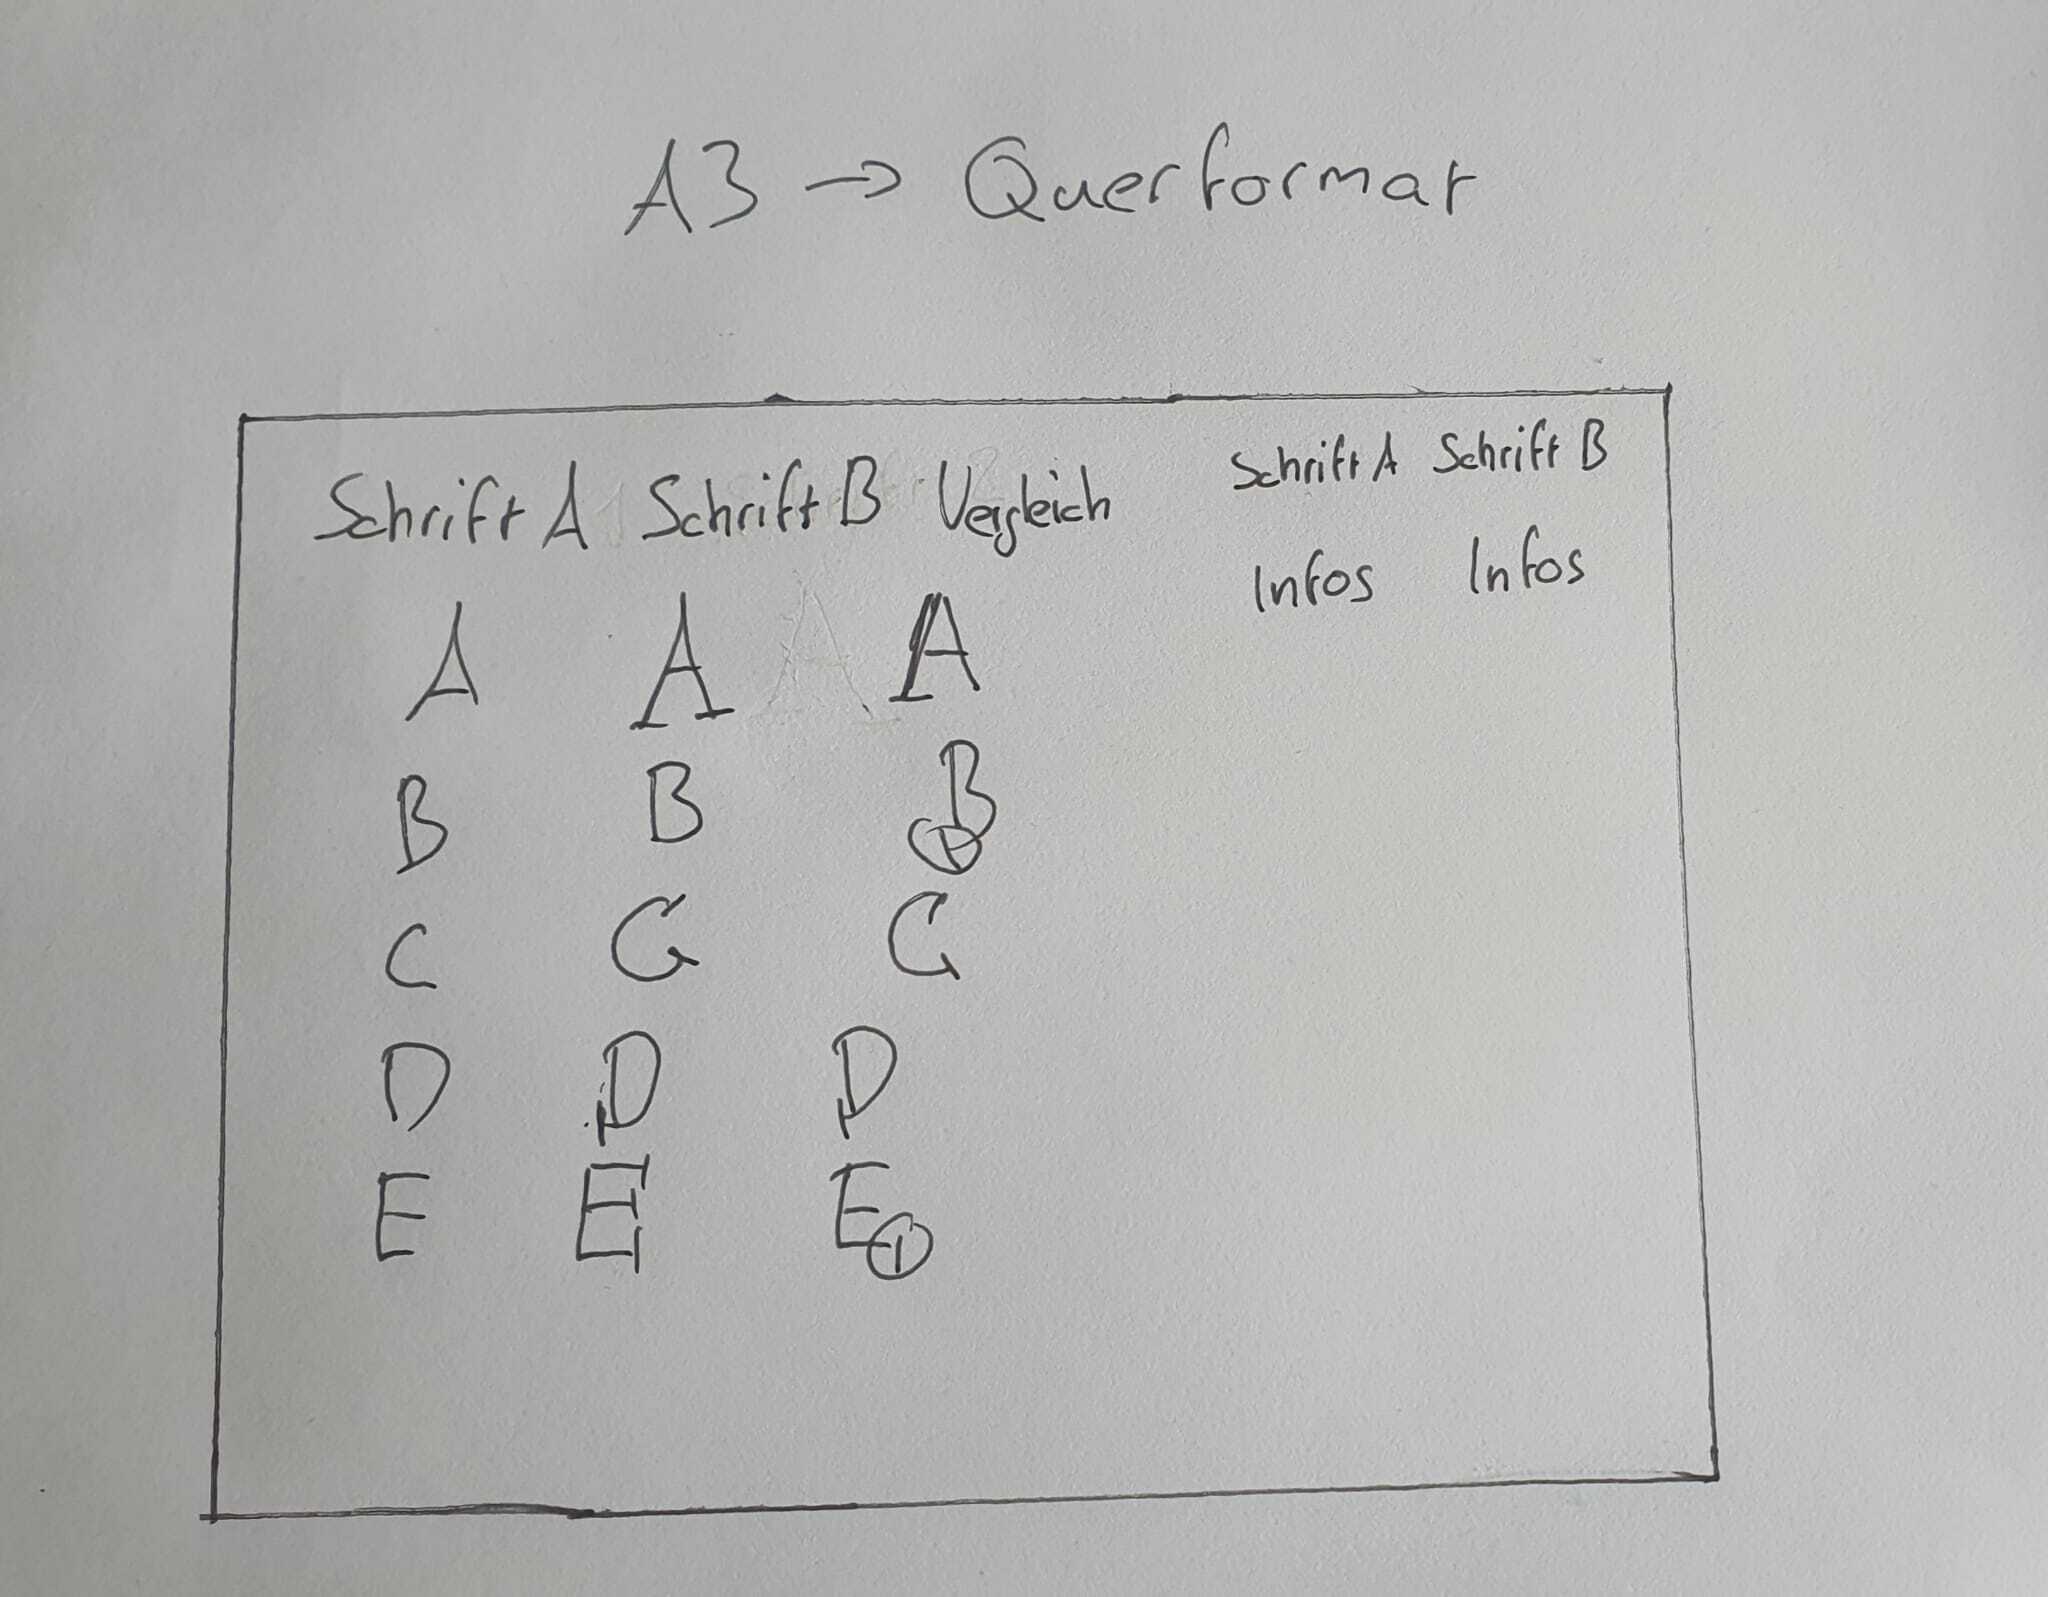 A3 → Querformat
Schrift A Schrift B Vergleich
A A A
B B B
C C C
D D D
E E E
Schrift A Schrift B
Infos Infos